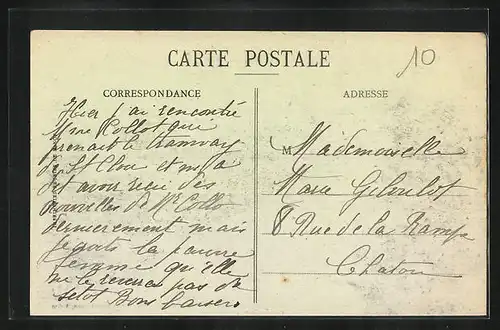 CARTE POSTALE
10
CORRESPONDANCE
Hier j'ai rencontré
Mme Collot que
prenait le tramway
de St Clou et m'a
dit avoir recu des
nouvelles de Mr Collo
dernierement mais
je la pauvre
femme qu'elle
ne le reverra pas de
sitot Bons baisers
ADRESSE
M Mademoiselle
Marie
8 Rue de la Rampe
Chatou